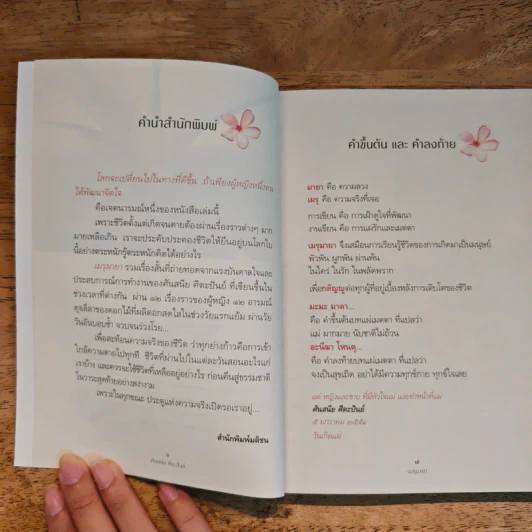 คำนำสำนักพิมพ์
โลกจะเปลี่ยนไปในทางที่ดีขึ้น ถ้าเพียงผู้หญิงหนึ่งคน
ได้พัฒนาจิตใจ
คือเจตนารมณ์หนึ่งของหนังสือเล่มนี้
เพราะชีวิตตั้งแต่เกิดจนตายต้องผ่านเรื่องราวต่างๆ มาก
มายเหลือเกิน เราจะประคับประคองชีวิตให้ยืนอยู่บนโลกใบ
นี้อย่างตระหนักรู้ตระหนักคิดได้อย่างไร
เมรุมายา รวมเรื่องสั้นที่ถ่ายทอดจากแรงบันดาลใจและ
ประสบการณ์การทำงานของคันสนีย ศีตะปันย์ ที่เขียนขึ้นใน
ช่วงเวลาที่ต่างกัน ผ่าน ๑๒ เรื่องราวของผู้หญิง ๑๒ อารมณ์
ดุจลีลาของดอกไม้ที่ผลิดอกสดใสในช่วงวัยแรกแย้ม ผ่านวัย
วันอันบอบช้ำ จวบจนร่วงโรย...
เพื่อสะท้อนความจริงของชีวิต ว่าทุกย่างก้าวคือการเข้า
ใกล้ความตายไปทุกที ชีวิตที่ผ่านไปในแต่ละวันสอนอะไรแก่
เราบ้าง และควรจะใช้ชีวิตที่เหลืออยู่อย่างไร ก่อนคืนสู่ธรรมชาติ
ในวาระสุดท้ายอย่างสง่างาม
เพราะในทุกขณะ ประตูแห่งความจริงเปิดรอเราอยู่...
สำนักพิมพ์มติชน
๖
ศันสนีย ศีตะปันย์
คำขึ้นต้น และ คำลงท้าย
มายา คือ ความลวง
เมรุ คือ ความจริงที่เจอ
การเขียน คือ การเฝ้าดูใจที่พัฒนา
งานเขียน คือ การแผ่รักและเมตตา
เมรุมายา จึงเสมือนการเรียนรู้ชีวิตของการเกิดมาเป็นมนุษย์
พัวพัน ผูกพัน ผ่านพ้น
ในใคร่ ในรัก ในพลัดพราก
เพื่อกตัญญูต่อทุกผู้ที่อยู่เบื้องหลังการเติบโตของชีวิต
มะมะ มาตา...
คือ คำขึ้นต้นบทแผ่เมตตา ที่แปลว่า
แม่ มากมาย นับชาติไม่ถ้วน
อะนีฆา โหนตุ...
คือ คำลงท้ายบทแผ่เมตตา ที่แปลว่า
จงเป็นสุขเถิด อย่าได้มีความทุกข์กาย ทุกข์ใจเลย
แด่ หญิงและชาย ที่มีหัวใจแม่ และทำหน้าที่แม่
ศันสนีย ศีตะปันย์
๕ มกราคม ๒๕๕๑
วันเกิดแม่
๗
เมรุมายา